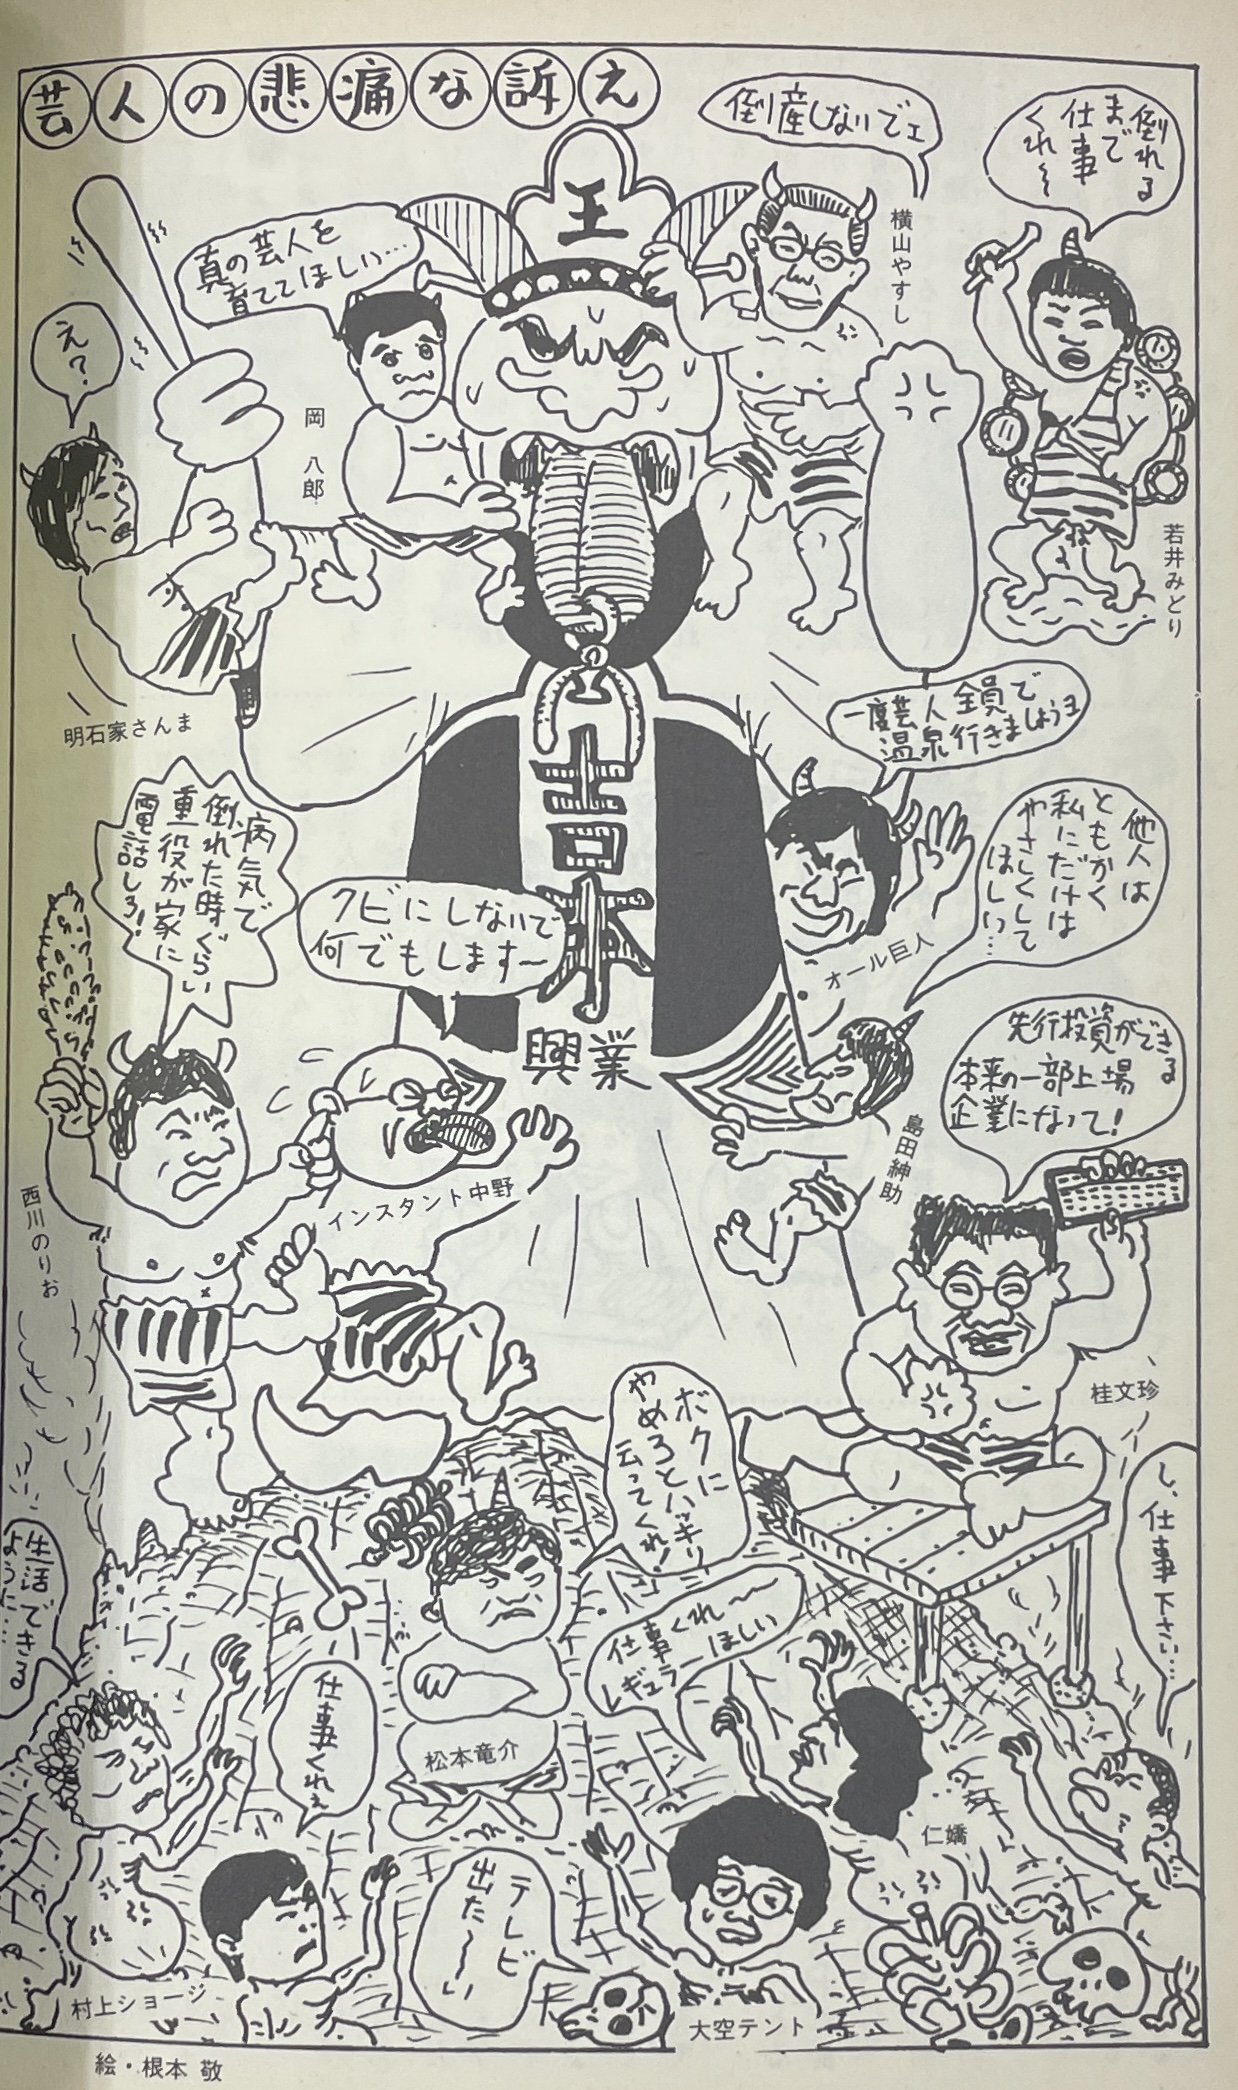 芸人の悲痛な訴え
倒れる
まで
仕事
くれ〜
若井みどり
倒産しないでェ
横山やすし
王
真の芸人を
育ててほしい…
岡八郎
え?
明石家さんま
吉本
興業
一度芸人全員で
温泉行きましょうョ
オール巨人
他人は
ともかく
私にだけは
やさしくして
ほしい…
島田紳助
病気で
倒れた時ぐらい
重役が家に
電話しろ!
西川のりお
クビにしないで
何でもします〜
インスタント中野
先行投資ができる
本来の一部上場
企業になって!
桂文珍
ボクに
やめろとハッキリ
云ってくれ!
松本竜介
し、仕事下さい…
仕事くれ〜
レギュラーほしい
仁嬌
生活できる
ように…
仕事くれぇ
村上ショージ
テレビ
出た〜い
大空テント
絵・根本 敬